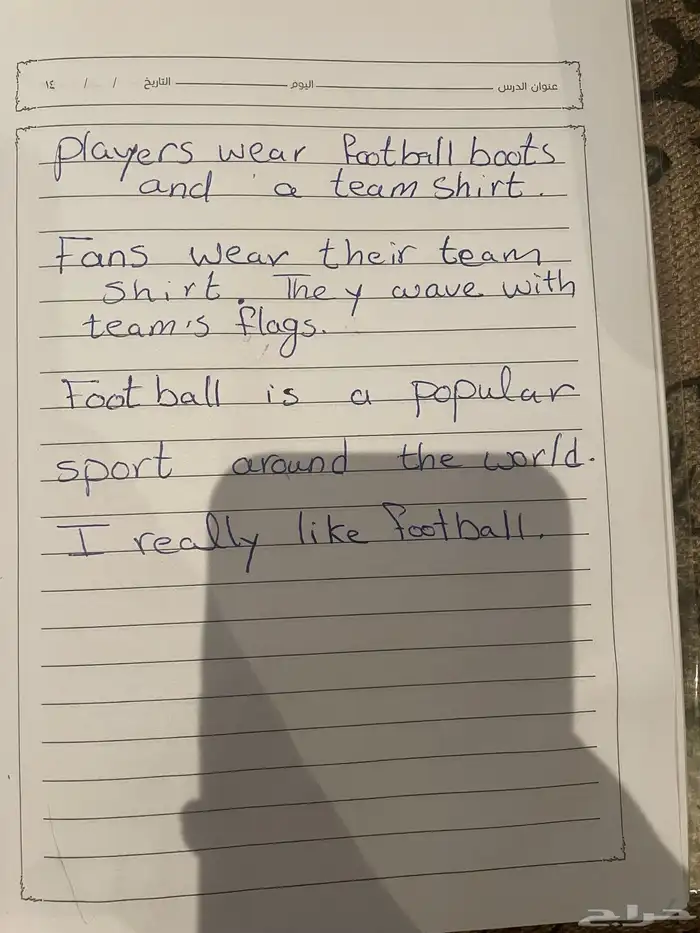 عنوان الدرس اليوم التاريخ / / ١٤
players wear football boots
and a team shirt.
Fans wear their team
shirt. They wave with
team's flags.
Football is a popular
sport around the world.
I really like football.
حراج